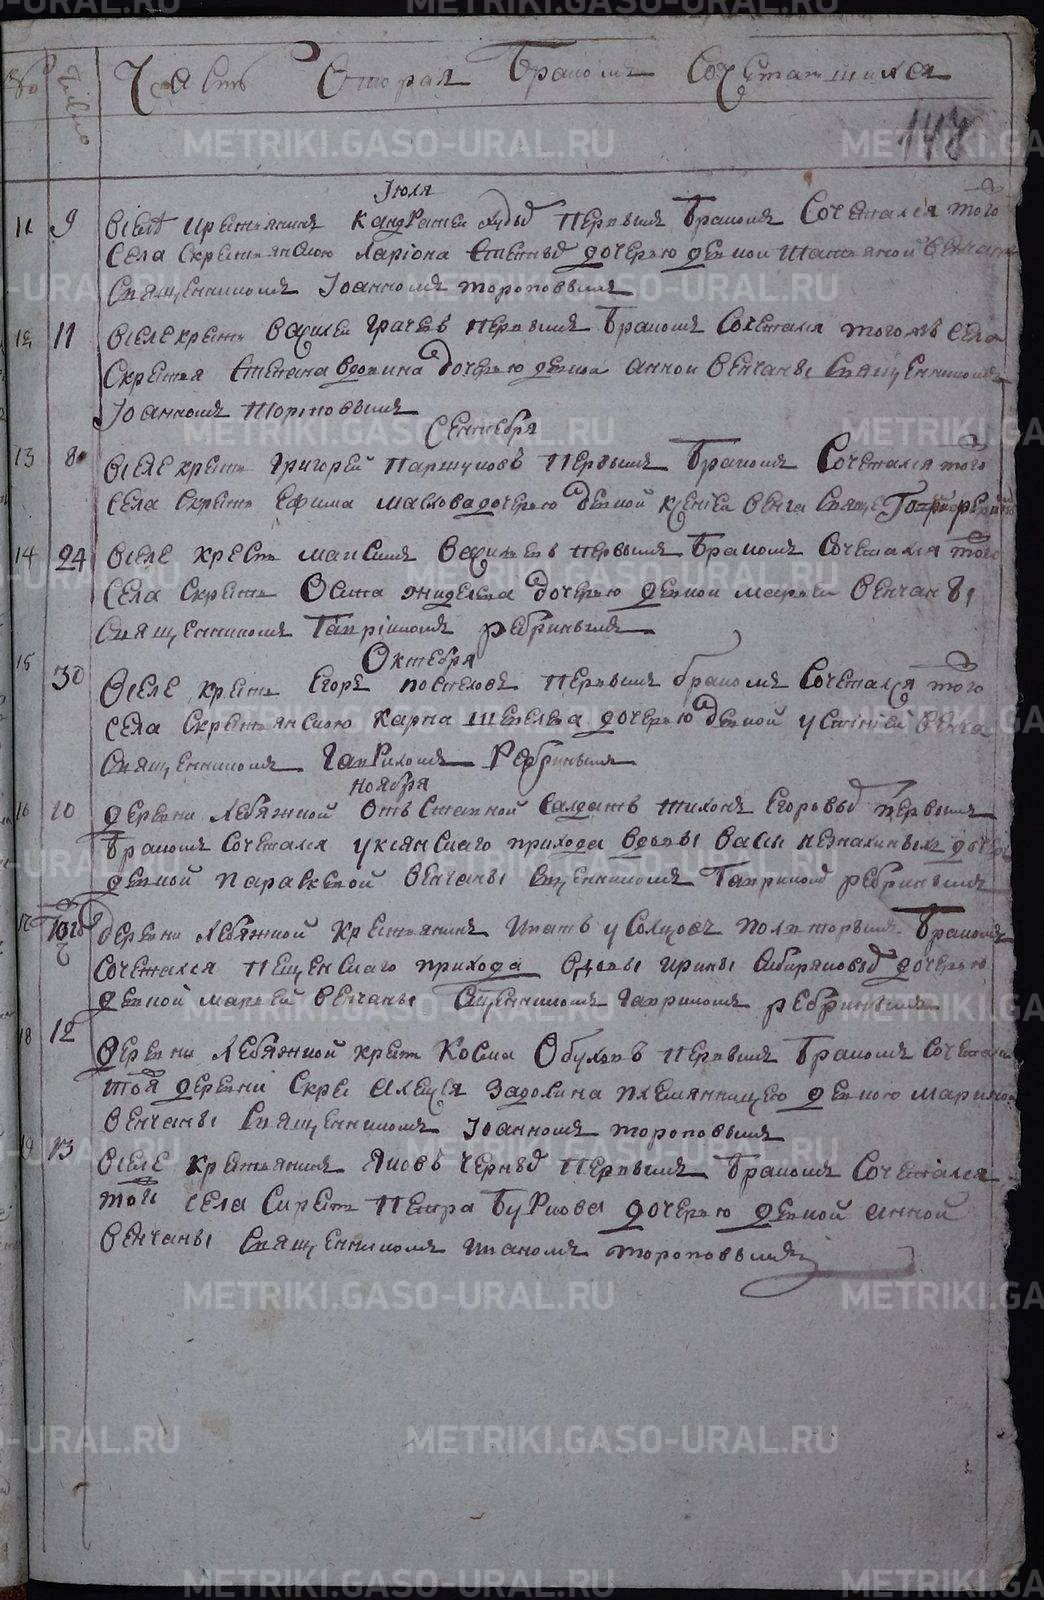 Часть Вторая Браком Сочетавшихся
№ число
148
Июля
11 9 Вселе крестьянин Кандратей первым браком Сочетался того
Села Скрестьянскою Лариона дочерью девкой Татьяной венчаны
Священником Иоанном тороповым
12 11 Вселе крестья Василей Грачев первым браком Сочетался тогож Села
Скрестья Степана вдовина дочерью девкой Анной венчаны Священником
Иоанном Тороповым
Сентебря
13 8 Вселе крестья Григорей Паршуков первым браком Сочетался того
Села Скрестья Ефима Маслова дочерью девкой венча
14 24 Вселе крестья Максим Василев первым браком Сочетался того
Села Скрестья Осипа дочерью девкой Марьей венчаны
Священником Гавриилом ребриным
Октебря
15 30 Вселе крестья Егор Поспелов первым браком Сочетался того
Села Скрестьянскою Карпа Шевелева дочерью девкой Устиньей венча
Священником Гаврилом Ребриным
ноября
16 10 Деревни Лебяжной Отставной Салдат Тихон Егоровых первым
браком Сочетался Уксянскаго прихода вдовы дочерью
девкой Параскевой венчаны Сщенником Гаврилом ребриным
17 Деревни Лебяжной крестьянин Игнатей полуторым браком
Сочетался Пещенскаго прихода вдовы Ирины Сибиряковых дочерью
девкой Марьей венчаны Сщенником Гаврилом ребриным
18 12 Деревни Лебяжной крестья Косма Обухов первым браком Сочетался
той деревни Скрес Алексея Задорина племянницею девкою Мариною
венчаны Священником Иоанном тороповым
19 13 Вселе крестьянин Яков Черных первым браком Сочетался
того Села Скрестья Петра Буркова дочерью девкой Анной
венчаны Священником Иваном тороповым
METRIKI.GASO-URAL.RU